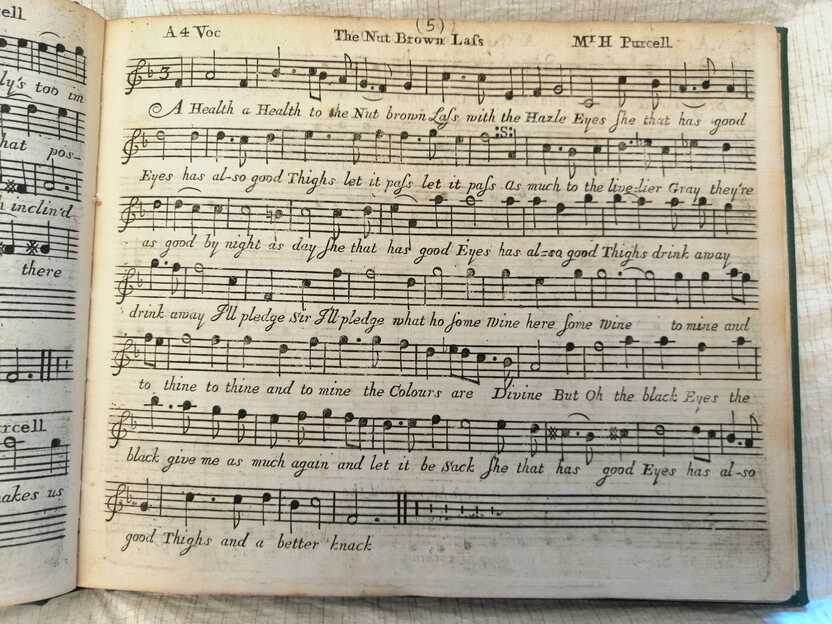 ell
ly's too im
hat pos-
inclin'd
there
rcell
akes us
(5)
A 4 Voc The Nut Brown Laſs Mr H Purcell
3
A Health a Health to the Nut brown Laſs with the Hazle Eyes ſhe that has good
:S:
Eyes has al-so good Thighs let it paſs let it paſs as much to the live-lier Gray they're
as good by night as day ſhe that has good Eyes has al=so good Thighs drink away
drink away I'll pledge Sir I'll pledge what ho ſome Wine here ſome Wine to mine and
to thine to thine and to mine the Colours are Divine But Oh the black Eyes the
black give me as much again and let it be Sack ſhe that has good Eyes has al-so
good Thighs and a better knack